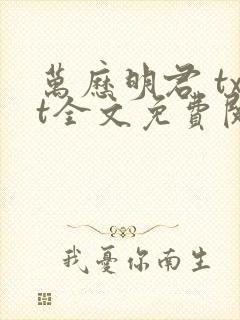 萬歷明君 tx
t全文免費閱
我憂你南生